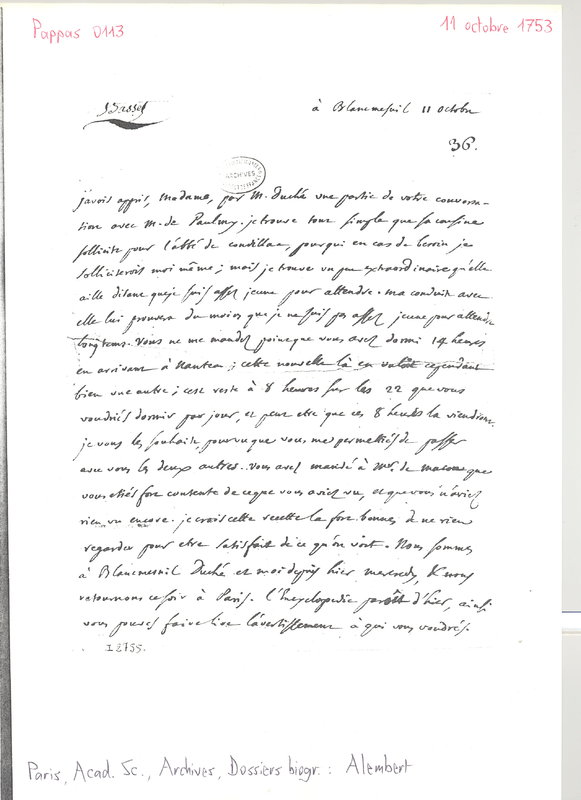 Pappas 0113
11 octobre 1753
à Blancmesnil 11 octobre
36.
ARCHIVES
J'avois appris, Madame, par M. Duché une partie de votre conversa-
tion avec M. de Paulmy. je trouve tout simple que sa cousine
sollicite pour l'abbé de Condillac, pourqui en cas de besoin je
solliciterois moi même; mais je trouve un peu extraordinaire qu'elle
aille disant que je suis assez jeune pour attendre. ma conduite avec
elle lui prouvera du moins que je ne suis pas assez jeune pour attendre
longtems. Vous ne me mandez point que vous avez dormi 14 heures
en arrivant à Nanteau; cette nouvelle là en valoit cependant
bien une autre; c'est reste à 8 heures sur les 22 que vous
voudriés dormir par jour, et peut etre que ces 8 heures la viendront.
je vous les souhaite, pourvu que vous me permettiés de passer
avec vous les deux autres. Vous avez mandé à Me. de que
vous etiés fort contente de ce que vous aviez vu, et que vous n'aviez
rien vu encore. je crois cette recette la fort bonne, de ne rien
regarder pour etre satisfait de ce qu'on voit. Nous sommes
à Blancmesnil Duché et moi depuis hier mercredy, & nous
retournons ce soir à Paris. l'Encyclopedie paroit d'hier, ainsi
vous pouvez faire lire l'avertissement à qui vous voudrés.
I 2755.
Paris, Acad. Sc., Archives, Dossiers biogr. : Alembert